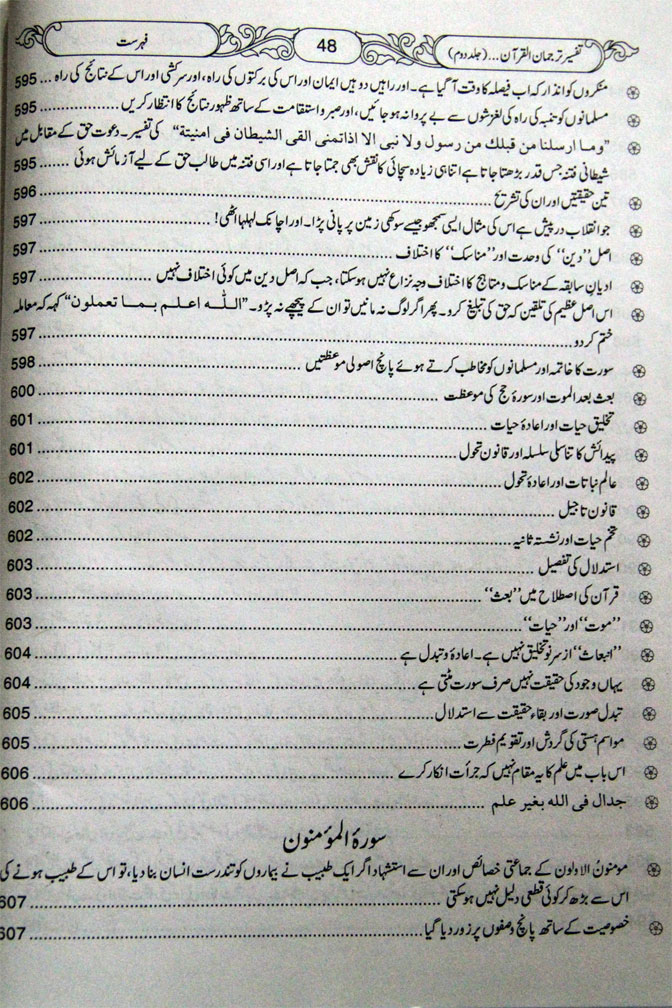 تفسیر ترجمان القرآن... (جلد دوم)
48
فہرست
منکروں کو انذار کہ اب فیصلہ کا وقت آ گیا ہے۔ اور راہیں دو ہیں ایمان اور اس کی برکتوں کی راہ، اور سرکشی اور اس کے نتائج کی راہ ... 595
مسلمانوں کو تنبہ کی راہ کی لغزشوں سے بے پروا نہ ہو جائیں، اور صبر و استقامت کے ساتھ ظہور نتائج کا انتظار کریں ... 595
”وما ارسلنا من قبلك من رسول ولا نبی الا اذاتمنی القی الشیطان فی امنیتة“ کی تفسیر۔ دعوت حق کے مقابل میں
شیطانی فتنہ جس قدر بڑھتا جاتا ہے اتنا ہی زیادہ سچائی کا نقش بھی جمتا جاتا ہے اور اسی فتنہ میں طالب حق کے لیے آزمائش ہوئی ... 595
تین حقیقتیں اور ان کی تشریح ... 596
جو انقلاب درپیش ہے اس کی مثال ایسی سمجھو جیسے سوکھی زمین پر پانی پڑا۔ اور اچانک لہلہا اٹھی! ... 597
اصل ”دین“ کی وحدت اور ”مناسک“ کا اختلاف ... 597
ادیان سابقہ کے مناسک و مناہج کا اختلاف وجہ نزاع نہیں ہو سکتا، جب کہ اصل دین میں کوئی اختلاف نہیں ... 597
اس اصل عظیم کی تلقین کہ حق کی تبلیغ کرو۔ پھر اگر لوگ نہ مانیں تو ان کے پیچھے نہ پڑو۔ ”اللہ اعلم بما تعملون“ کہہ کہ معاملہ
ختم کر دو ... 597
سورت کا خاتمہ اور مسلمانوں کو مخاطب کرتے ہوئے پانچ اصولی موعظتیں ... 598
بعث بعد الموت اور سورۂ حج کی موعظت ... 600
تخلیق حیات اور اعادۂ حیات ... 601
پیدائش کا تناسلی سلسلہ اور قانون تحول ... 601
عالم نباتات اور اعادۂ تحول ... 602
قانون تاجیل ... 602
تخم حیات اور نشستہ ثانیہ ... 602
استدلال کی تفصیل ... 603
قرآن کی اصطلاح میں ”بعث“ ... 603
”موت“ اور ”حیات“ ... 603
”انبعاث“ از سر نو تخلیق نہیں ہے۔ اعادہ و تبدل ہے ... 604
یہاں وجود کی حقیقت نہیں صرف صورت مٹتی ہے ... 604
تبدل صورت اور بقاء حقیقت سے استدلال ... 605
مواسم ہستی کی گردش اور تقویم فطرت ... 605
اس باب میں علم کا یہ مقام نہیں کہ جرأت انکار کرے ... 606
جدال فی اللہ بغیر علم ... 606
سورۃ المؤمنون
مومنون الاولون کے جماعتی خصائص اور ان سے استشہاد اگر ایک طبیب نے بیماروں کو تندرست انسان بنا دیا، تو اس کے طبیب ہونے کی
اس سے بڑھ کر کوئی قطعی دلیل نہیں ہو سکتی ... 607
خصوصیت کے ساتھ پانچ وصفوں پر زور دیا گیا ... 607